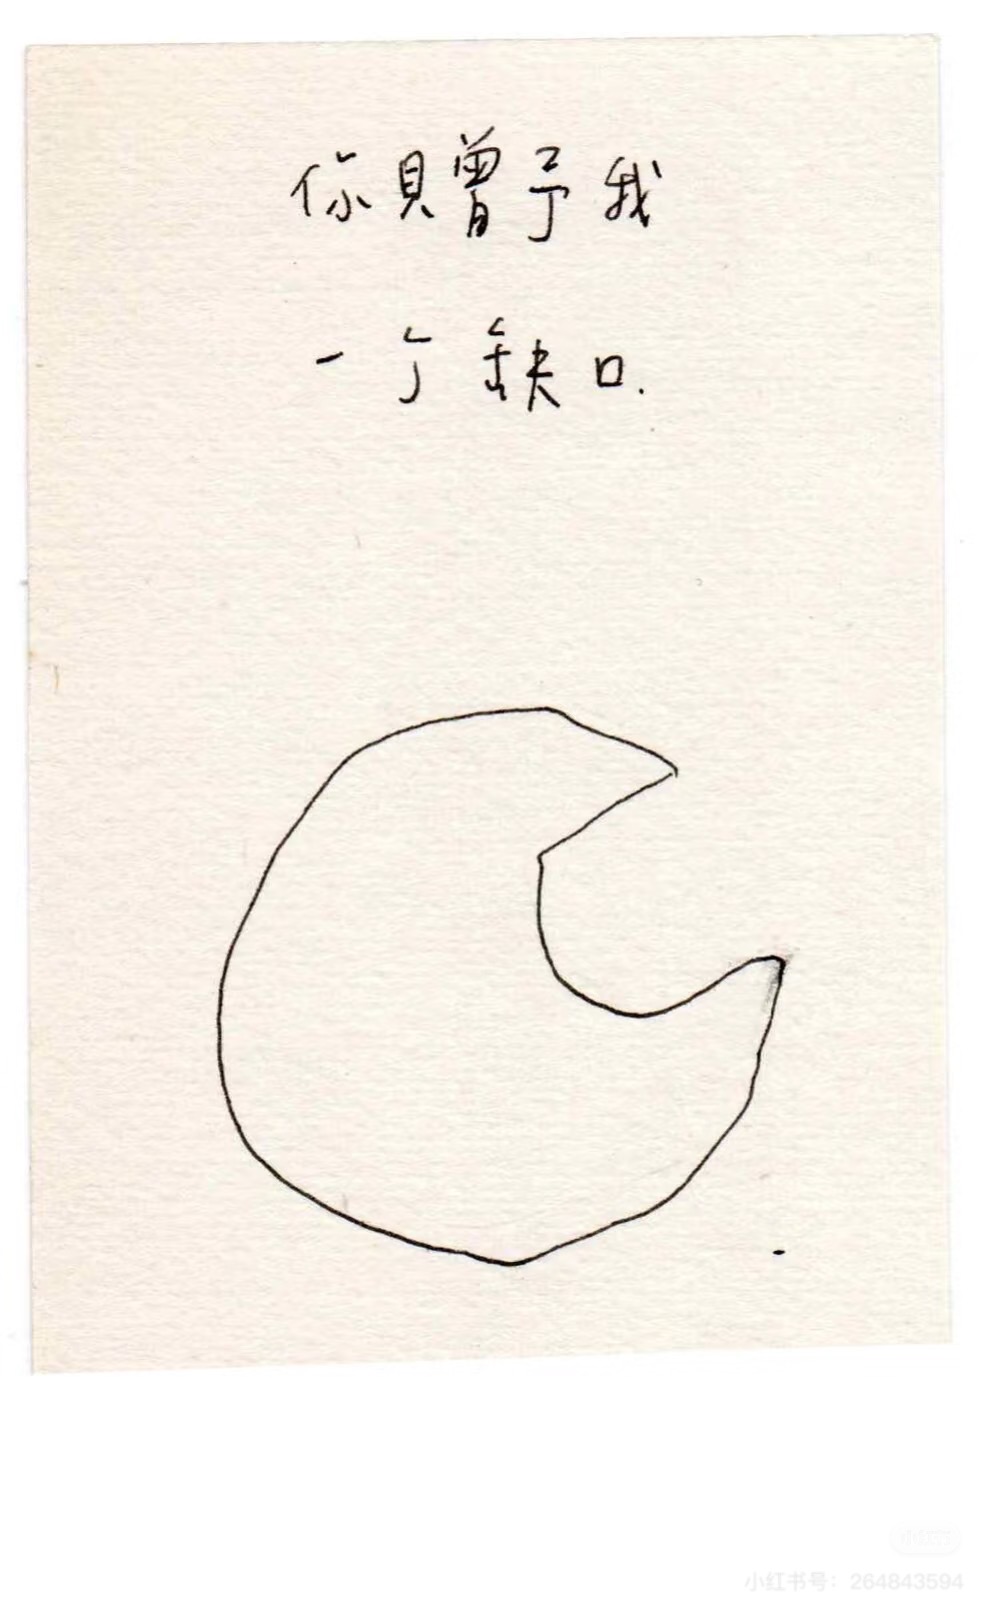 你贈予我
一个缺口.
小红书
小红书号：264843594